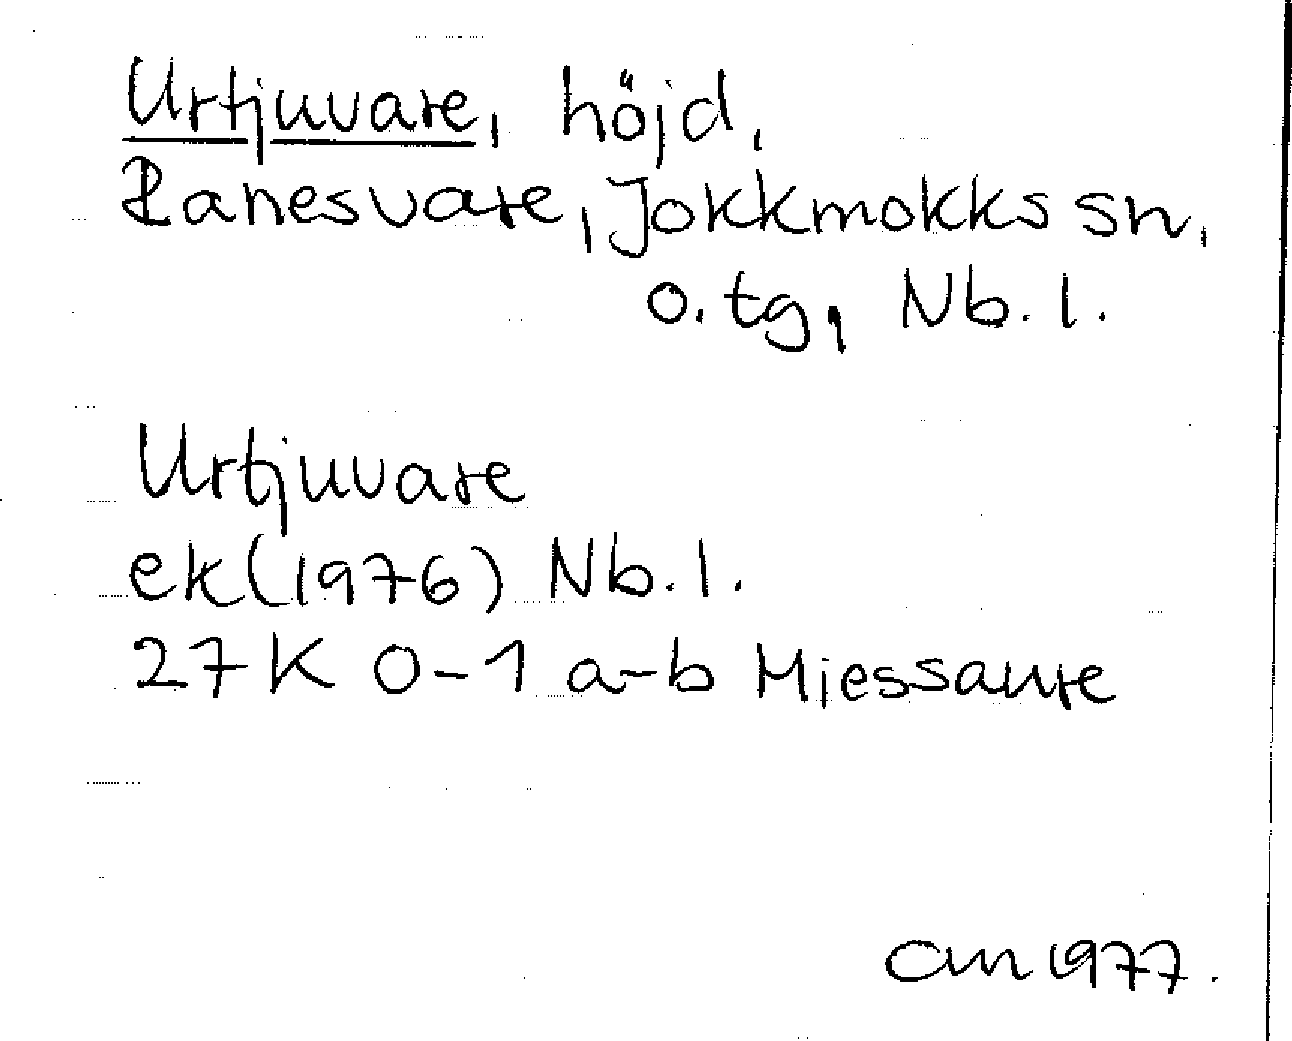 Urtjuvare, höjd,
Ranesvare, Jokkmokks sn,
o. tg, Nb. l.
Urtjuvare
ek (1976) Nb. l.
27 K 0-1 a-b Miessaure
CM 1977.